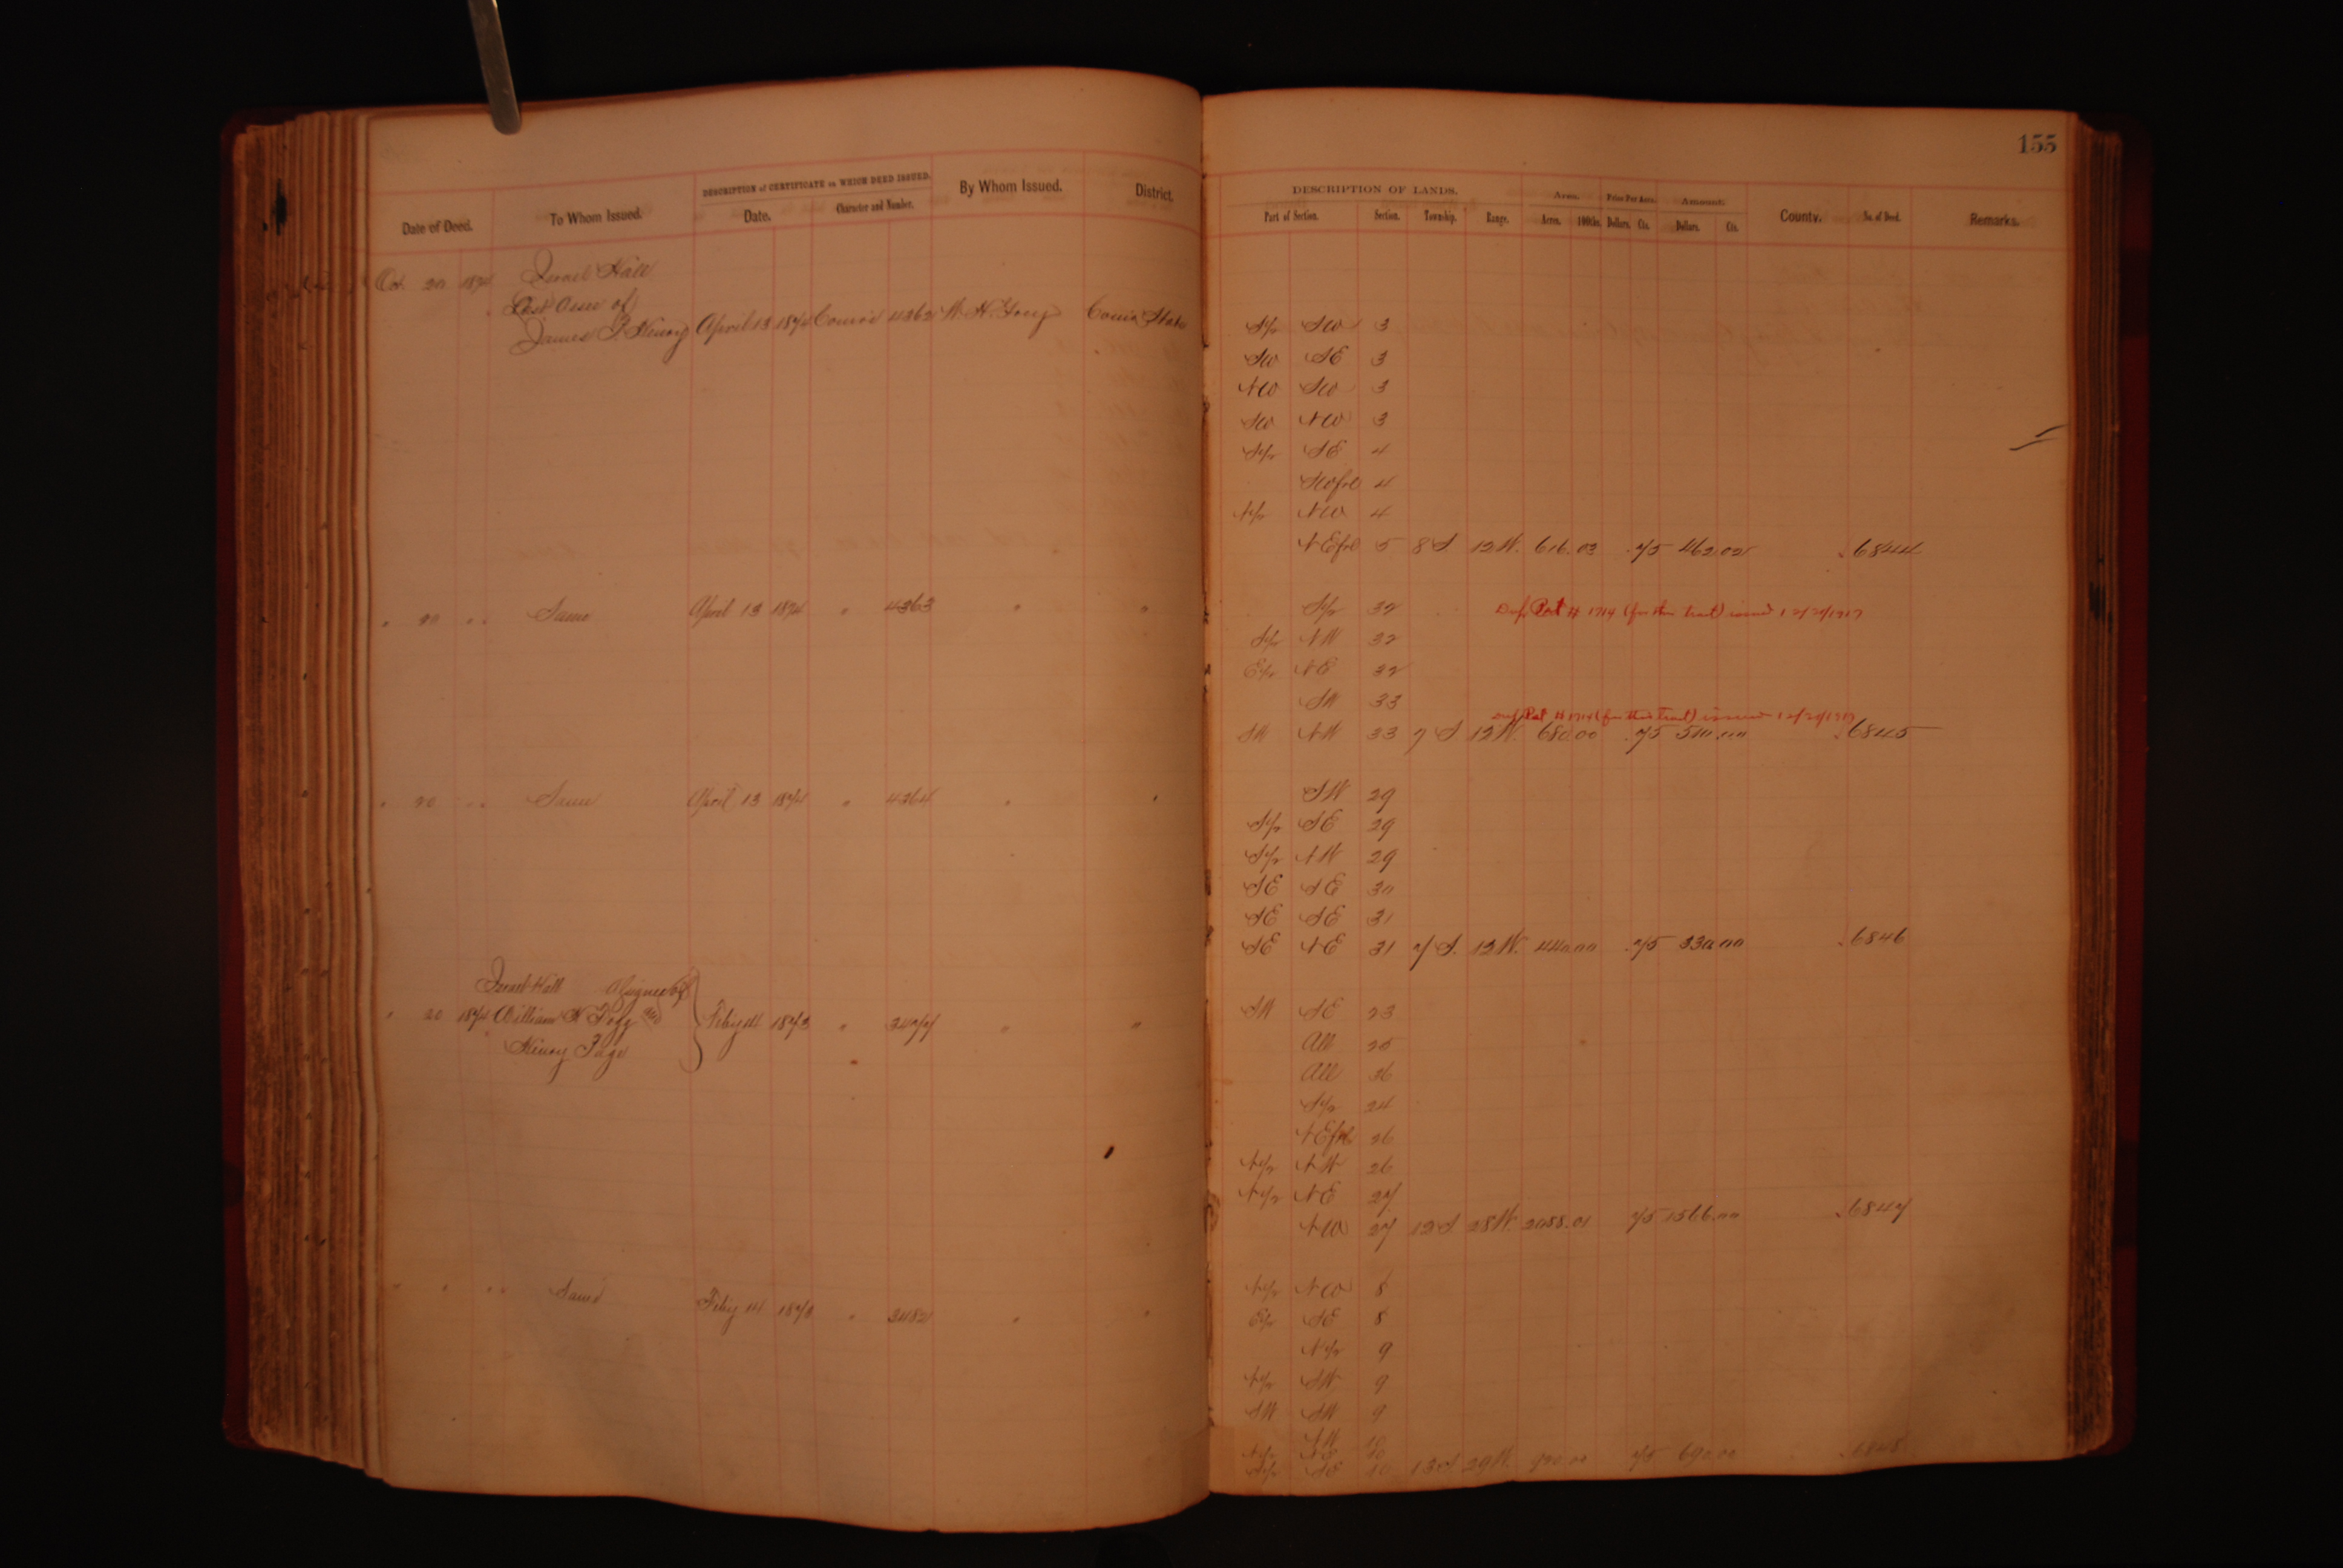 155
DESCRIPTION of CERTIFICATE on WHICH DEED ISSUED.
By Whom Issued.
District.
Date of Deed.
To Whom Issued.
Date.
Character and Number.
DESCRIPTION OF LANDS.
Area.
Price Per Acre.
Amount.
County.
No. of Deed.
Remarks.
Part of Section.
Section.
Township.
Range.
Acres.
100ths.
Dollars.
Cts.
Dollars.
Cts.
Oct. 20 1874 Israel Hall
of
James F. Henry April 13 1874 4362
S½ SW 3
SW SE 3
NW SW 3
SW NW 3
S½ SE 4
SWfrl 4
N½ NW 4
NEfrl 5 8 S 12 W. 616.03 .75 462.02 6844
" 20 " " Same April 13 1874 " 4363 " "
S½ 32
Pat # 1714 (for this tract) issued 12/20/1917
S½ NW 32
E½ NE 32
SW 33
Pat # 1714 (for this tract) issued 12/20/1917
SW NW 33 7 S 12 W. 680.00 .75 510.00 6845
" 20 " " Same April 13 1874 " 4364 " "
SW 29
S½ SE 29
S½ NW 29
SE SE 30
SE SE 31
SE NE 31 7 S. 12 W. 440.00 .75 330.00 6846
Israel Hall Assignee of
" 20 1874 William H Fogg
Henry Page
Feby 14 1873 " 3477 " "
SW SE 23
All 25
All 36
S½ 24
NEfrl 26
N½ NW 26
N½ NE 27
NW 27 12 S. 28 W. 2088.01 .75 1566.00 6847
" " " " Same Feby 14 1873 " 3482 " "
N½ NW 8
E½ SE 8
N½ 9
N½ SW 9
SW SW 9
NW 10
10
10 13 S 29 W. 920.00 .75 690.00 6848